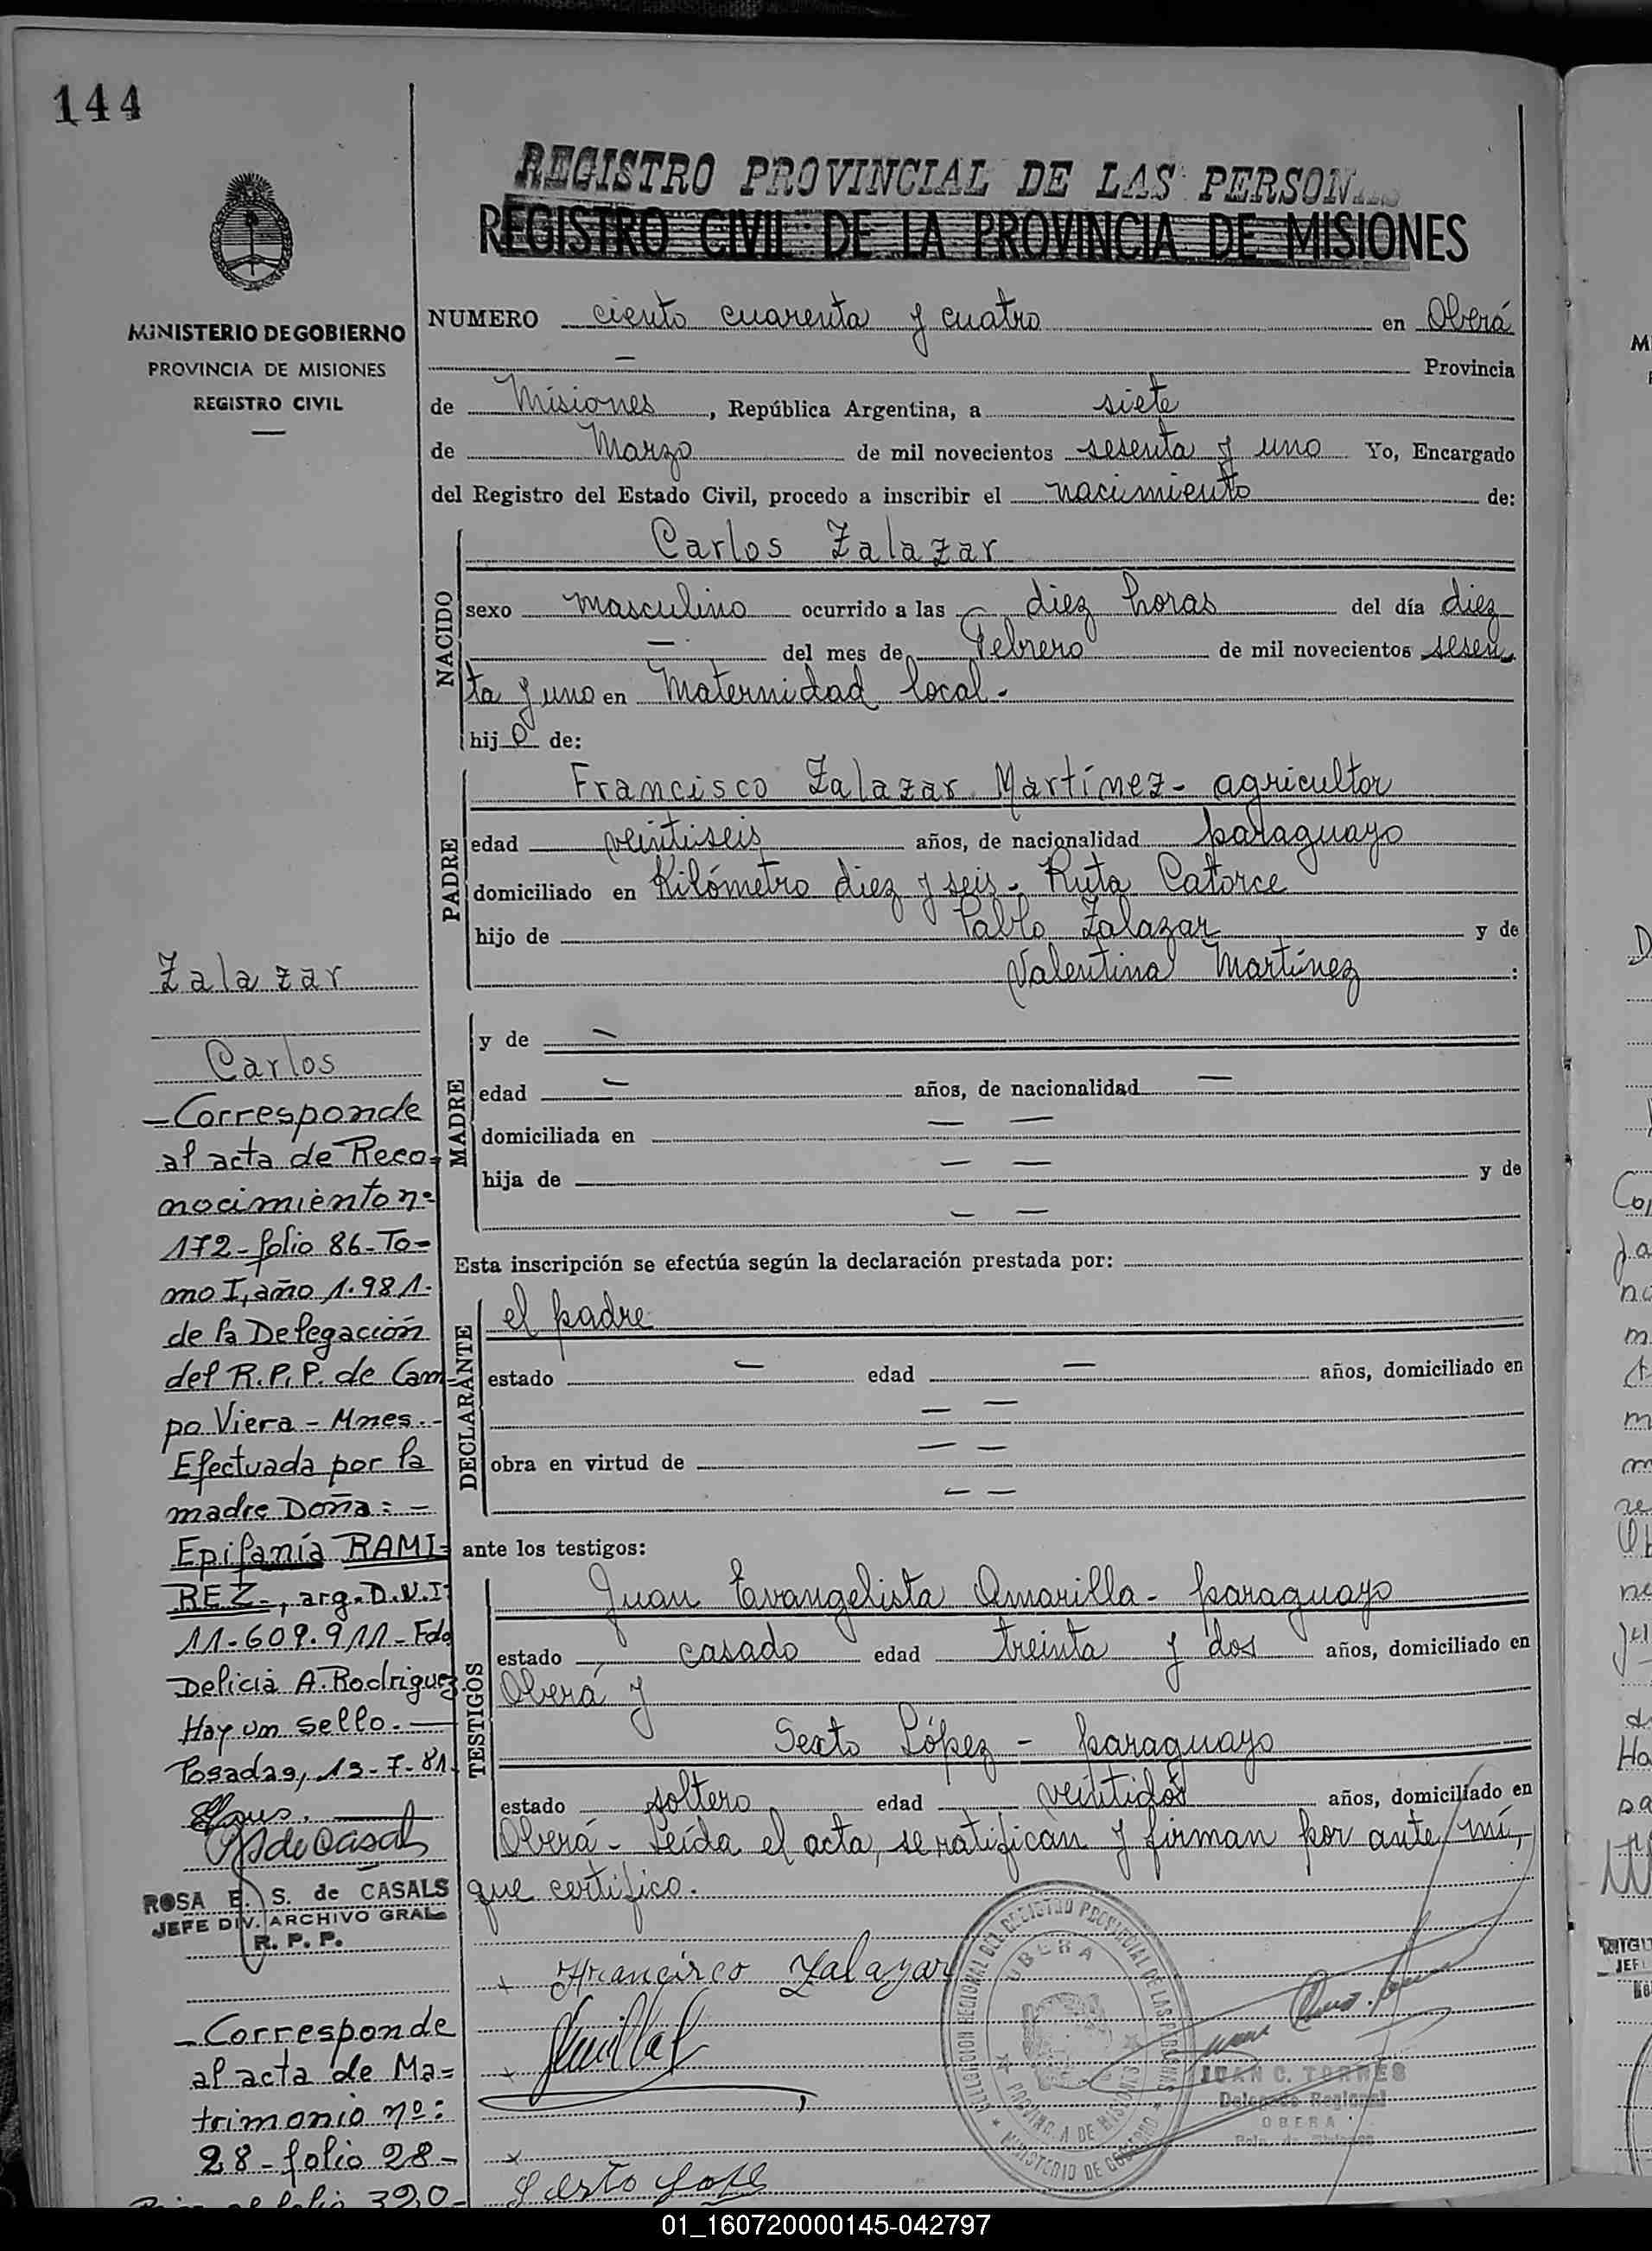 144
REGISTRO PROVINCIAL DE LAS PERSONAS
REGISTRO CIVIL DE LA PROVINCIA DE MISIONES
MINISTERIO DE GOBIERNO
PROVINCIA DE MISIONES
REGISTRO CIVIL
NUMERO ciento cuarenta y cuatro en Oberá
Provincia
de Misiones, República Argentina, a siete
de Marzo de mil novecientos sesenta y uno Yo, Encargado
del Registro del Estado Civil, procedo a inscribir el nacimiento de:
NACIDO
Carlos Zalazar
sexo masculino ocurrido a las diez horas del día diez
del mes de Febrero de mil novecientos sesen
ta y uno en Maternidad local.
hijo de:
PADRE
Francisco Zalazar Martínez - agricultor
edad veintiseis años, de nacionalidad paraguayo
domiciliado en Kilómetro diez y seis - Ruta Catorce
hijo de Pablo Zalazar y de
Valentina Martínez :
MADRE
y de —
edad — años, de nacionalidad —
domiciliada en — —
hija de — — y de
— —
Esta inscripción se efectúa según la declaración prestada por:
DECLARANTE
el padre
estado — edad — años, domiciliado en
— —
obra en virtud de — —
— —
ante los testigos:
TESTIGOS
Juan Evangelista Amarilla - paraguayo
estado casado edad treinta y dos años, domiciliado en
Oberá y
Sexto López - paraguayo
estado soltero edad veintidos años, domiciliado en
Oberá - Leída el acta, se ratifican y firman por ante mí,
que certifico.
Francisco Zalazar
Sesto Lope
DELEGACION REGIONAL DEL REGISTRO PROVINCIAL DE LAS PERSONAS
OBERA
PROVINCIA DE MISIONES
MINISTERIO DE GOBIERNO
JUAN C. TORRES
Delegado Regional
OBERA
Zalazar
Carlos
- Corresponde
al acta de Reco=
nocimiento nº
172 - folio 86 - To=
mo I, año 1.981.
de la Delegación
del R.P.P. de Cam=
po Viera - Mnes. -
Efectuada por la
madre Doña: =
Epifanía RAMI=
REZ -, arg. D.N.I.
11-609.911 - Fdo
Delicia A. Rodriguez
Hay un sello. —
Posadas, 13-7-81.
ROSA E. S. de CASALS
JEFE DIV. ARCHIVO GRAL
R. P. P.
- Corresponde
al acta de Ma=
trimonio nº:
28 - folio 28 -
folio 320 -
01_160720000145-042797